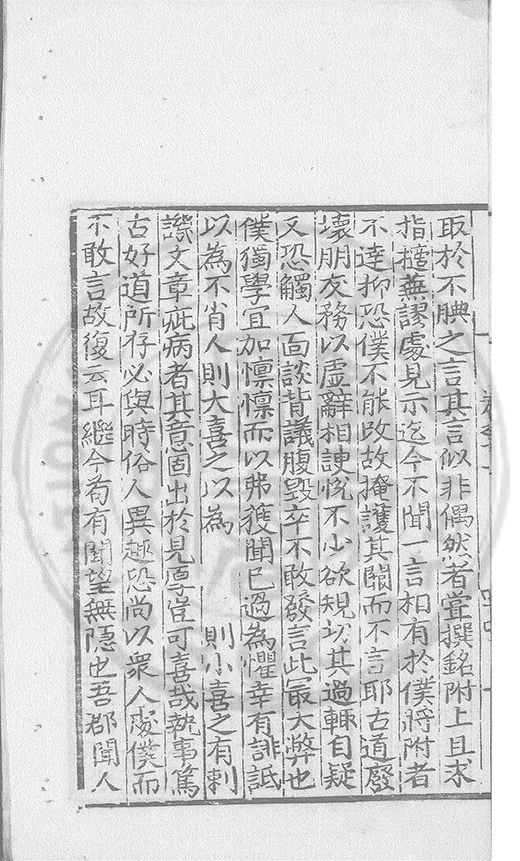 取於不腆之言其言似非偶然者嘗撰銘附上且求
指擿蕪謬處見示迄今不聞一言相有於僕將附者
不達抑恐僕不能改故掩護其闕而不言耶古道廢
壞朋友務以虛辭相諛悅不少欲規切其過輒自疑
又恐觸人面談背議腹毀卒不敢發言此最大弊也
僕獨學宜加懍懍而以弗獲聞已過為懼幸有誹詆
以為不肖人則大喜之以為 則小喜之有刺
譏文章疵病者其意固出於見厚豈可喜哉執事篤
古好道所存必與時俗人異趣恐尚以衆人處僕而
不敢言故復云耳繼今苟有聞望無隱也吾郡聞人